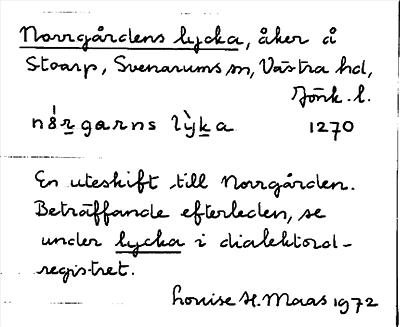 Norrgårdens lycka, åker å
Stoarp, Svenarums sn, Västra hd,
Jönk. l.
nȯ́r̲garns lỳk̲a 1270
En uteskift till Norrgården.
Beträffande efterleden, se
under lycka i dialektord-
registret.
Louise H. Maas 1972